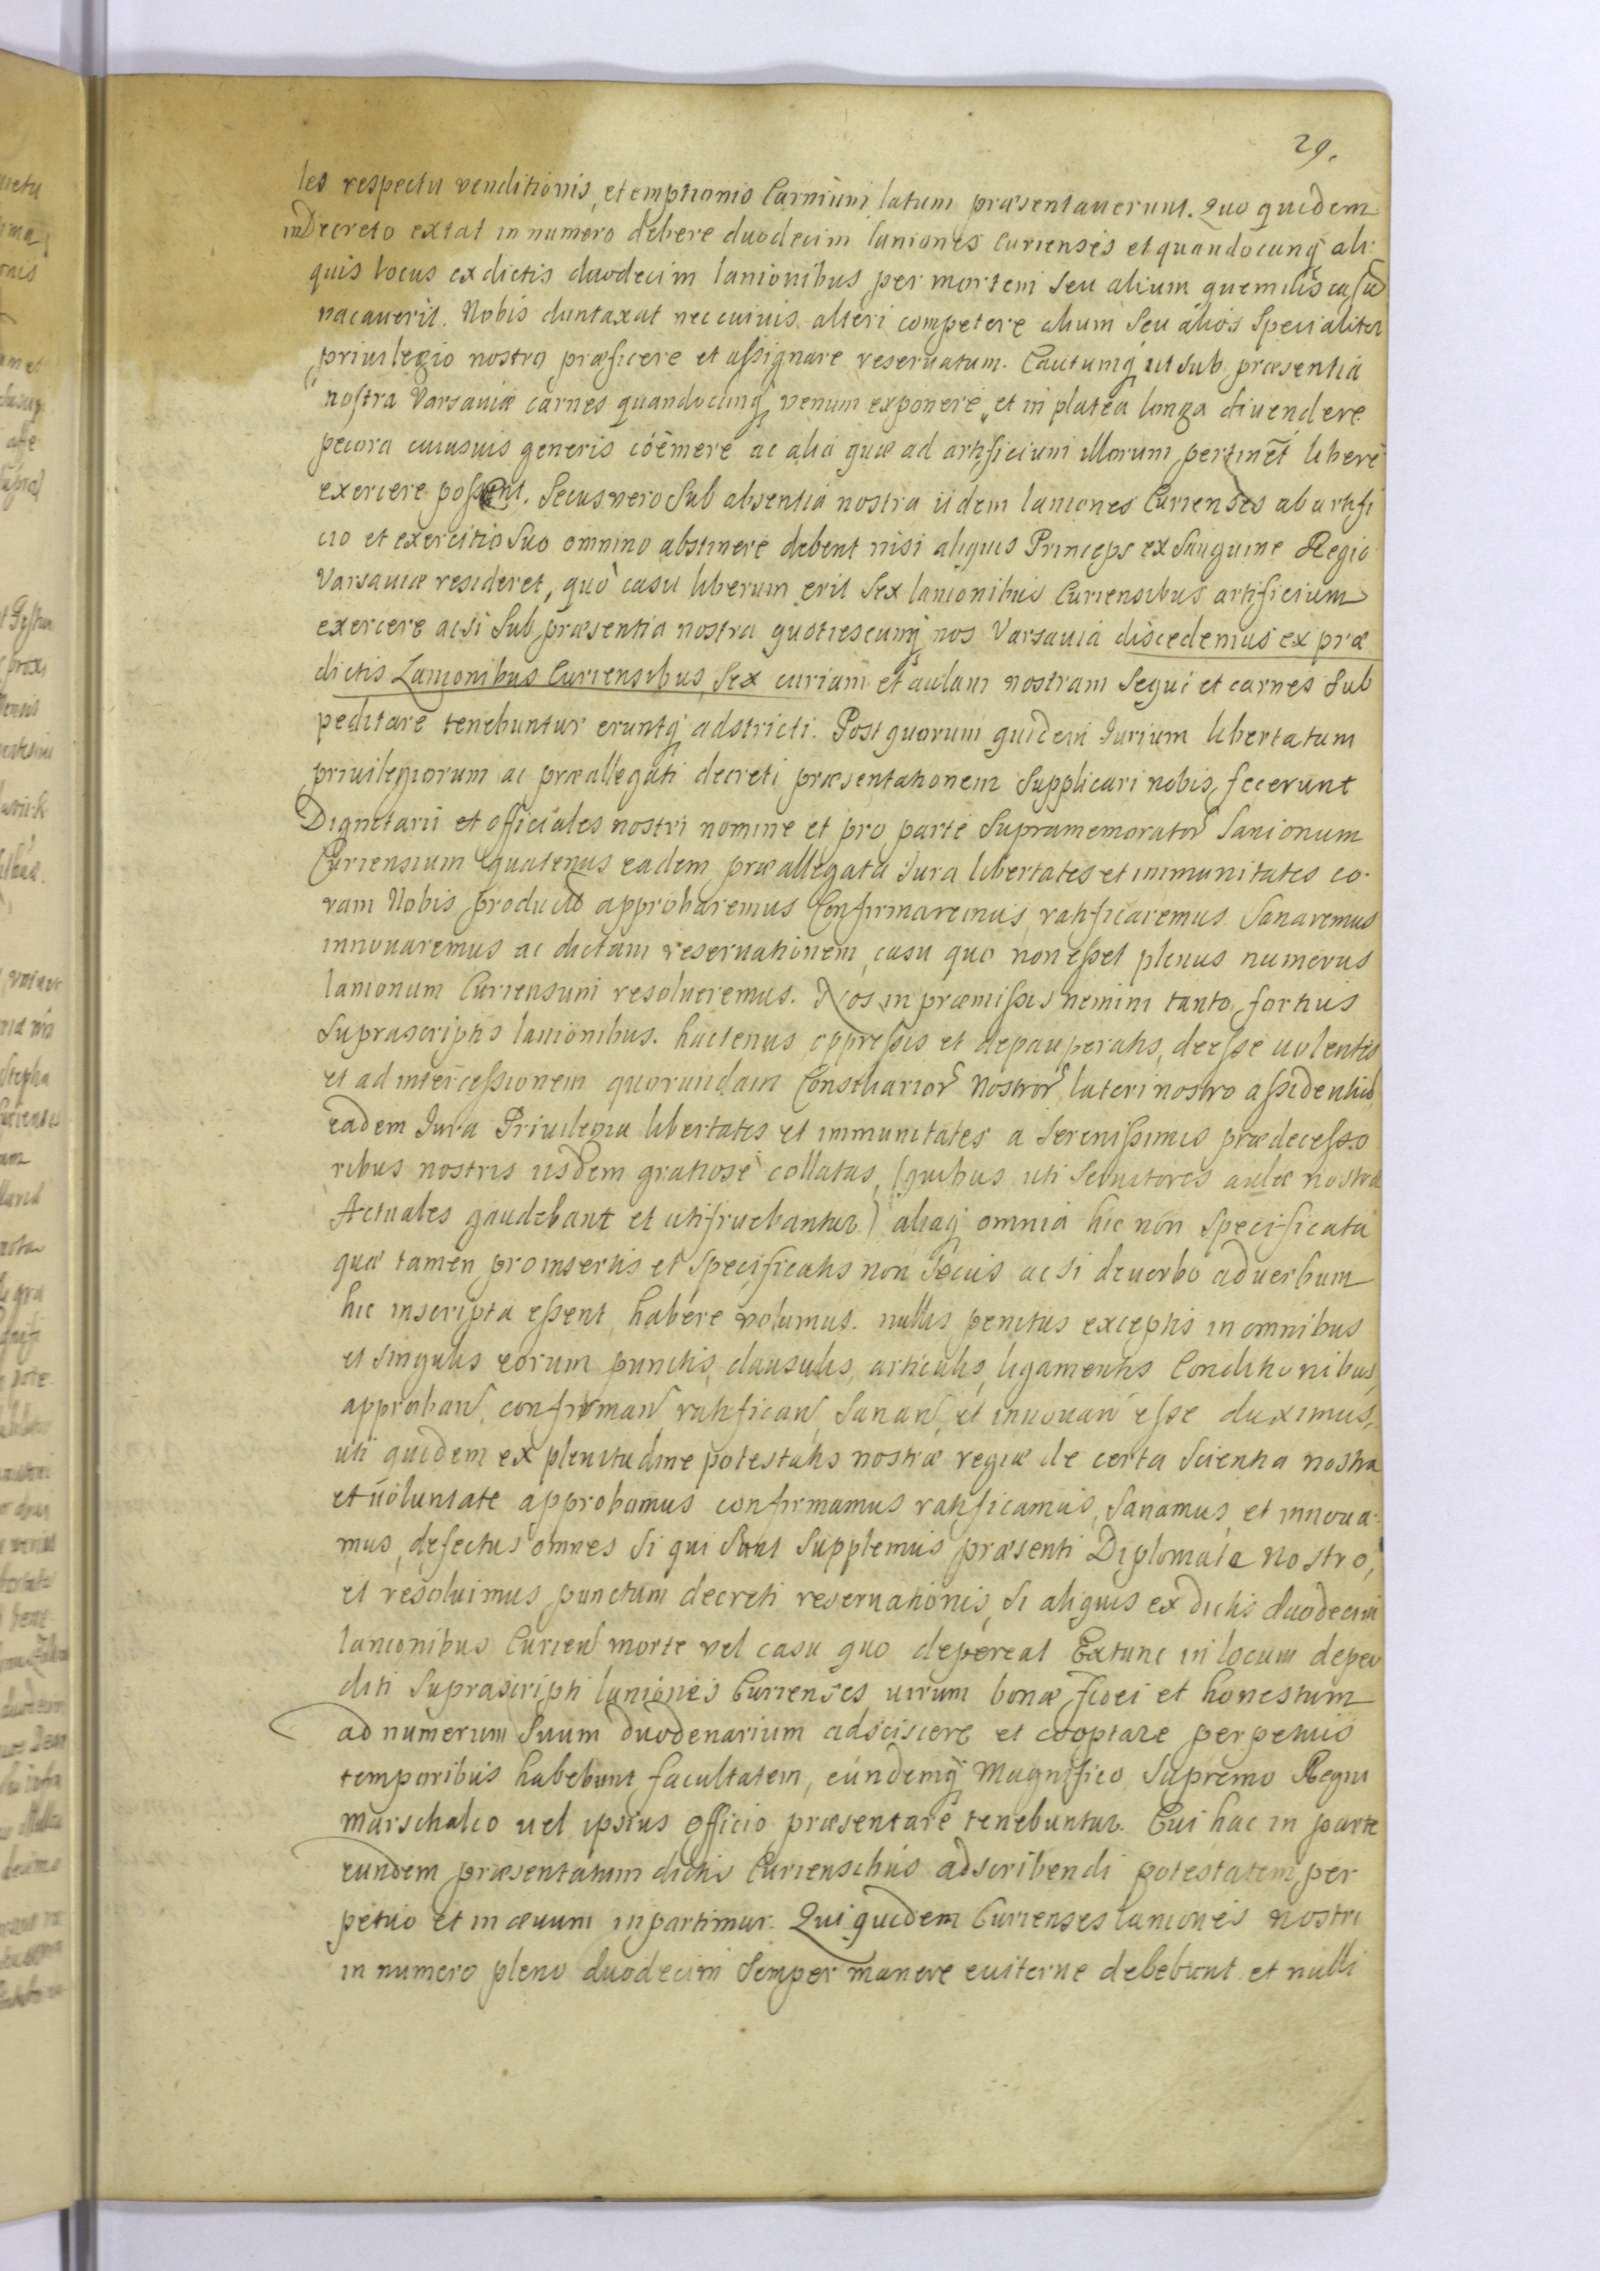 29.
les respectu venditionis, et emptionis Carnium latum præsentaverunt. Quo quidem
in Decreto extat in numero debere duodecim laniones Curienses et quandocunq ali
quis locus ex dictis duodecim lanionibus per mortem seu alium quemvis casu
vacaverit. Nobis duntaxat nec cuivis alteri competere alium seu alios specialiter
privilegio nostro præficere et assignare reservatum. Cautumq ut sub præsentia
nostra Varsaviæ carnes quandocunq venum exponere, et in platea longa divendere
pecora cuiusvis generis cöemere ac alia quæ ad artificium illorum pertinet libere
exercere possent. Secus vero sub absentia nostra iidem laniones Curienses ab artifi
cio et exercitio suo omnino abstinere debent nisi aliquis Princeps ex Sanguine Regio
Varsaviæ resideret, quo casu liberum erit sex lanionibus Curiensibus artificium
exercere ac si sub præsentia nostra quotiescunq nos Varsavia discedemus ex præ
dictis Lanionibus Curiensibus, sex curiam et aulam nostram sequi et carnes sub
peditare tenebuntur eruntq adstricti. Post quorum quidem Iurium libertatum
privilegiorum ac præallegati decreti præsentationem supplicari nobis fecerunt
Dignitarii et officiales nostri nomine et pro parte supramemorator lanionum
Curiensium quatenus eadem præallegata Iura libertates et immunitates co-
ram Nobis producto approbaremus Confirmaremus, ratificaremus Sanaremus
innovaremus ac dictam reservationem, casu quo non esset plenus numerus
lanionum Curiensum resolveremus. Nos in præmissis nemini tanto fortius
suprascriptis lanionibus hactenus oppressis et depauperatis, deesse volentes
et ad intercessionem quorundam Consiliarior Nostror lateri nostro assidentiu
eadem Iura Privilegia libertates et immunitates a Serenissimis prædecesso
ribus nostris iisdem gratiose collatas, (quibus uti servitores aulæ nostræ
Actuales gaudebant et utifruebantur) aliaq omnia hic non specificata
quæ tamen pro insertis et specificatis non secus ac si de verbo ad verbum
hic inscripta essent, habere volumus. nullis penitus exceptis in omnibus
et singulis eorum punctis, clausulis, articulis, ligamentis Conditionibus,
approban, confirman ratifican, Sanan, et innovan esse duximus,
uti quidem ex plenitudine potestatis nostræ regiæ de certa scientia nostra
et voluntate approbamus confirmamus ratificamus, Sanamus, et innova-
mus, defectus omnes si qui sunt supplemus præsenti Diplomate Nostro,
et resolvimus punctum decreti reservationis, si aliquis ex dictis duodecim
lanionibus Curien morte vel casu quo depereat Extunc in locum deper
diti suprascripti laniones Curienses virum bonæ fidei et honestum
ad numerum suum duodenarium adsciscere et cooptare perpetuis
temporibus habebunt facultatem, eundemq Magnifico Supremo Regni
Marschalco vel ipsius officio præsentare tenebuntur. Cui hac in parte
eundem præsentatum dictis Curiensibus adscribendi potestatem per
petuo et in ævum inpartimur. Qui quidem Curienses laniones nostri
in numero pleno duodecim semper manere eviterne debebunt et nulli